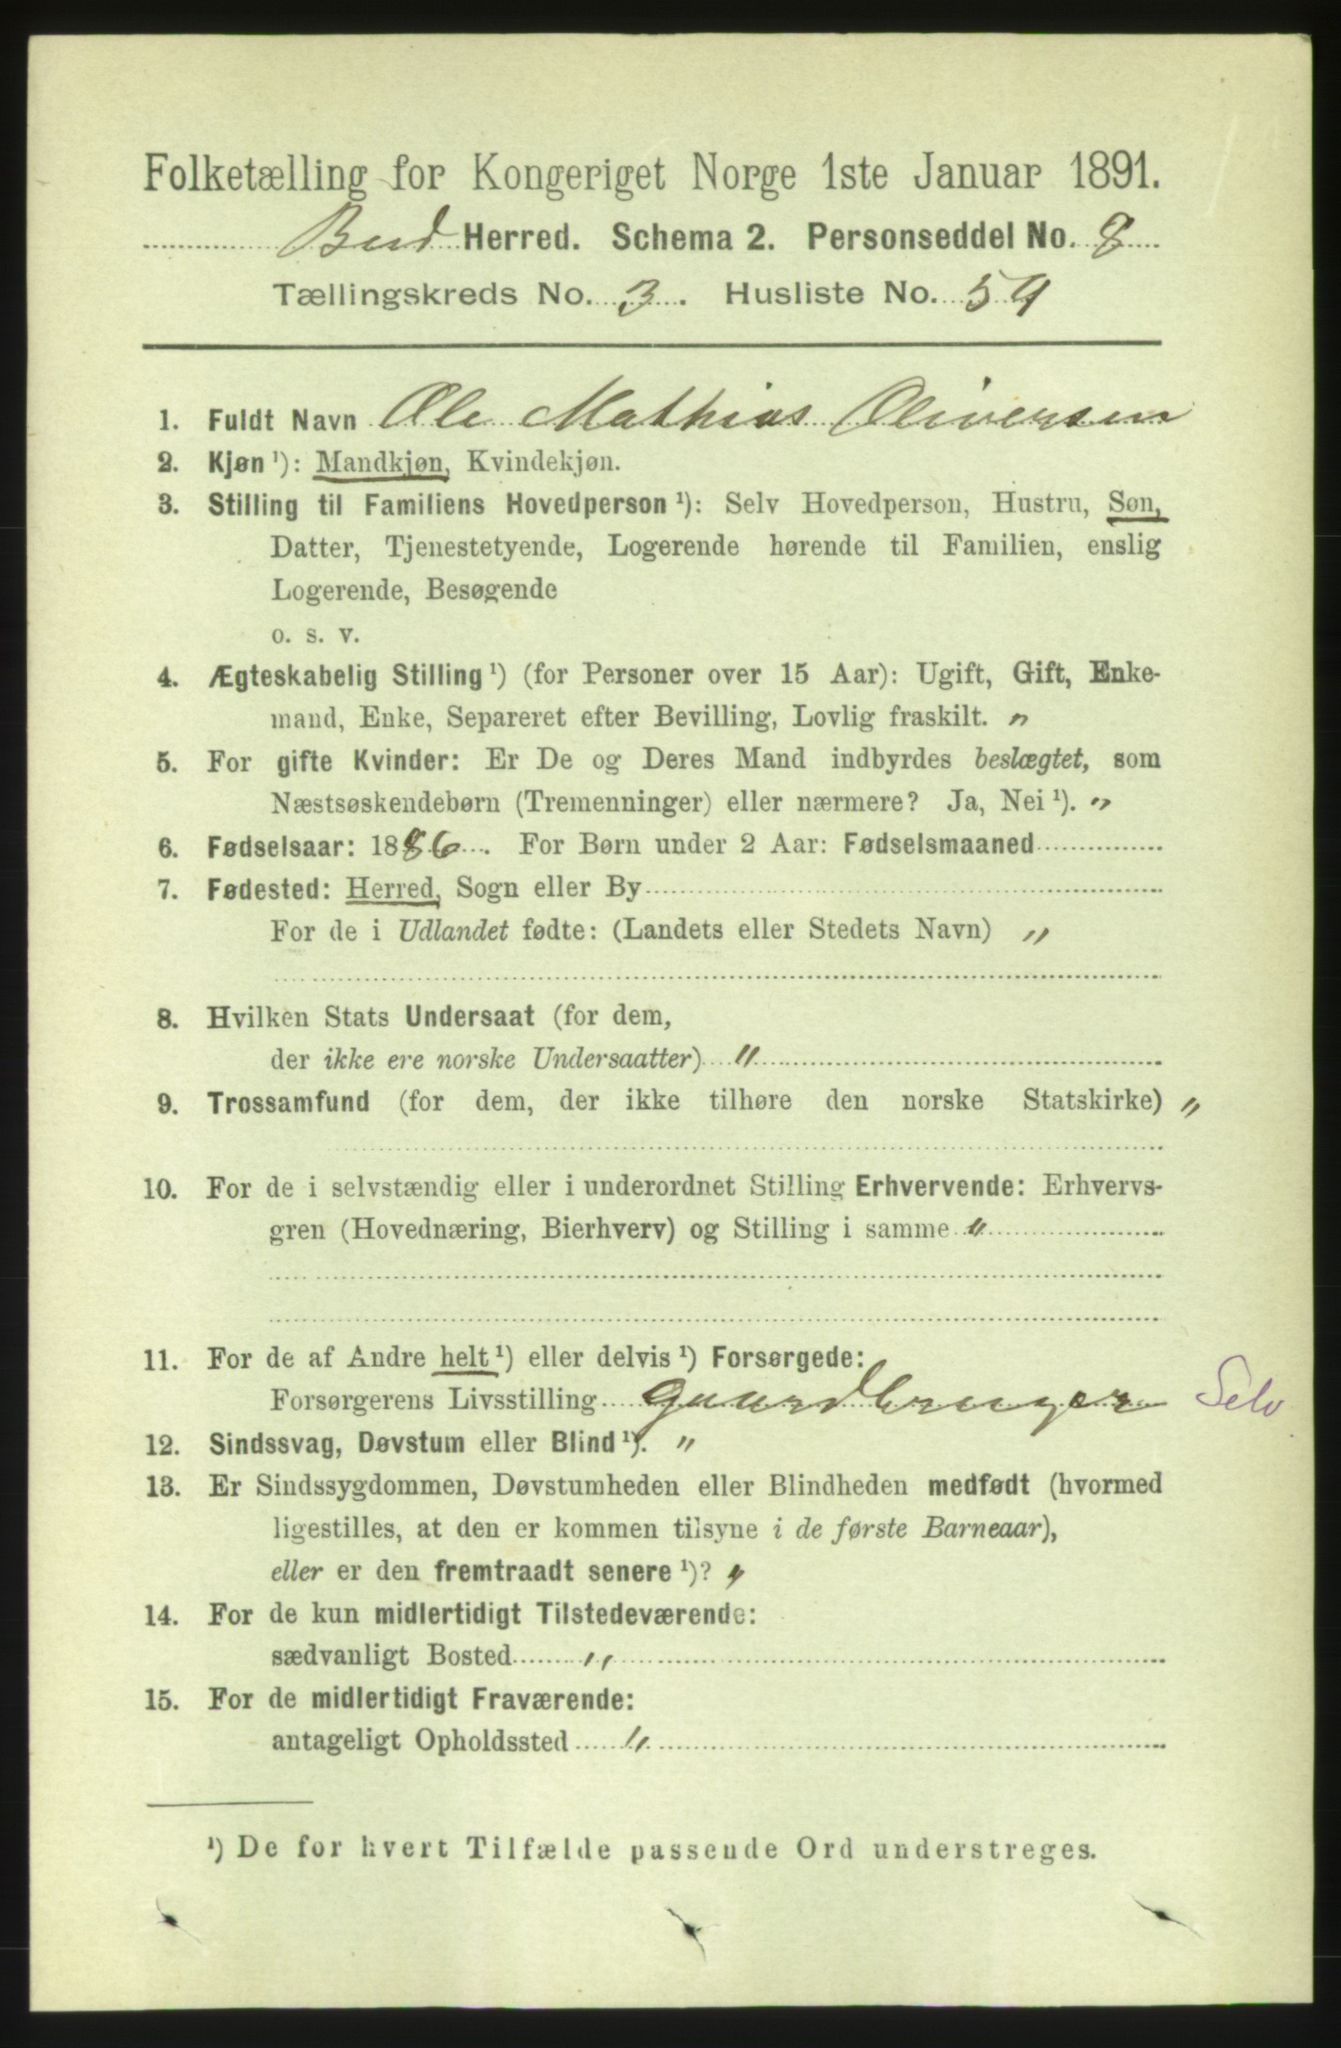 Folketælling for Kongeriget Norge 1ste Januar 1891.
Bud Herred. Schema 2. Personseddel No. 8
Tællingskreds No. 3. Husliste No. 59
1. Fuldt Navn Ole Mathias Oliversen
2. Kjøn ¹): Mandkjøn, Kvindekjøn.
3. Stilling til Familiens Hovedperson ¹): Selv Hovedperson, Hustru, Søn,
Datter, Tjenestetyende, Logerende hørende til Familien, enslig
Logerende, Besøgende
o. s. v.
4. Ægteskabelig Stilling ¹) (for Personer over 15 Aar): Ugift, Gift, Enke-
mand, Enke, Separeret efter Bevilling, Lovlig fraskilt. "
5. For gifte Kvinder: Er De og Deres Mand indbyrdes beslægtet, som
Næstsøskendebørn (Tremenninger) eller nærmere? Ja, Nei ¹). "
6. Fødselsaar: 1886. For Børn under 2 Aar: Fødselsmaaned
7. Fødested: Herred, Sogn eller By
For de i Udlandet fødte: (Landets eller Stedets Navn) "
8. Hvilken Stats Undersaat (for dem,
der ikke ere norske Undersaatter) "
9. Trossamfund (for dem, der ikke tilhøre den norske Statskirke) "
10. For de i selvstændig eller i underordnet Stilling Erhvervende: Erhvervs-
gren (Hovednæring, Bierhverv) og Stilling i samme "
11. For de af Andre helt ¹) eller delvis ¹) Forsørgede:
Forsørgerens Livsstilling Gaardbruger Selv
12. Sindssvag, Døvstum eller Blind ¹). "
13. Er Sindssygdommen, Døvstumheden eller Blindheden medfødt (hvormed
ligestilles, at den er kommen tilsyne i de første Barneaar),
eller er den fremtraadt senere ¹)? "
14. For de kun midlertidigt Tilstedeværende:
sædvanligt Bosted "
15. For de midlertidigt Fraværende:
antageligt Opholdssted "
¹) De for hvert Tilfælde passende Ord understreges.